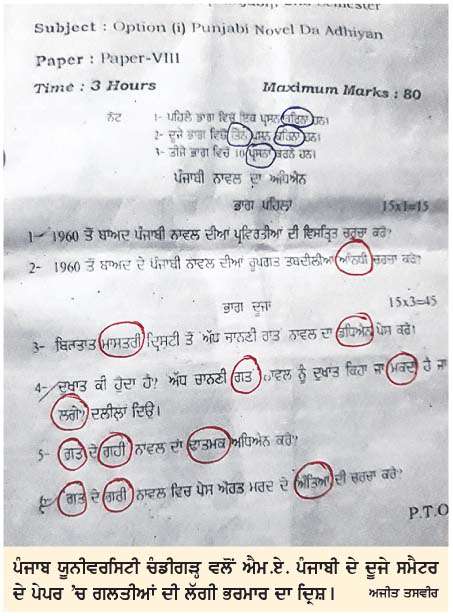 Semester
Subject : Option (i) Punjabi Novel Da Adhiyan
Paper : Paper-VIII
Time : 3 Hours Maximum Marks : 80
ਨੋਟ 1- ਪਹਿਲੇ ਭਾਗ ਵਿਚੋਂ ਇਕ ਪ੍ਰਸ਼ਨ ਕਹਿਨਾ ਹਨ।
2- ਦੂਜੇ ਭਾਗ ਵਿਚੋਂ ਤਿਨ ਪ੍ਰਸ਼ਨ ਕਹਿਨਾ ਹਨ।
3- ਤੀਜੇ ਭਾਗ ਵਿਚੋਂ 10 ਪ੍ਰਸ਼ਨਾ ਕਰਨੇ ਹਨ।
ਪੰਜਾਬੀ ਨਾਵਲ ਦਾ ਅਧਿਐਨ
ਭਾਗ ਪਹਿਲਾਂ 15x1=15
1- 1960 ਤੋਂ ਬਾਅਦ ਪੰਜਾਬੀ ਨਾਵਲ ਦੀਆ ਪ੍ਰਵਿਰਤੀਆਂ ਦੀ ਵਿਸਤ੍ਰਿਤ ਚਰੂਚਾ ਕਰੋ?
2- 1960 ਤੋਂ ਬਾਅਦ ਦੇ ਪੰਜਾਬੀ ਨਾਵਲ ਦੀਆਂ ਰੂਪਗਤ ਤਬਦੀਲੀਆਂ ਚਰਚਾ ਕਰੋ?
ਭਾਗ ਦੂਜਾ 15x3=45
3- ਬਿਰਤਾਂਤ ਮਾਸਤਰੀ ਦ੍ਰਿਸਟੀ ਤੋਂ ਅੱਧ ਚਾਨਣੀ ਰਾਤ ਨਾਵਲ ਦਾ ਪੇਸ ਕਰੋ।
4- ਦੁਖਾਂਤ ਕੀ ਹੁੰਦਾ ਹੈ? ਅੱਧ ਚਾਨਣੀ ਗਤ ਨਾਵਲ ਨੂੰ ਦੁਖਾਂਤ ਕਿਹਾ ਜਾ ਮਕਦਾ ਹੈ ਜਾ
ਲਗੇ? ਦਲੀਲਾਂ ਦਿਓ।
5- ਗਤ ਦੇ ਗਹੀ ਨਾਵਲ ਦਾ ਢਾਤਮਕ ਅਧਿਐਨ ਕਰੋ?
ਗਤ ਦੇ ਗਰੀ ਨਾਵਲ ਵਿਚ ਪੇਸ ਔਰਤ ਮਰਦ ਦੇ ਦੀ ਚਰਚਾ ਕਰੋ?
P.T.O
ਪੰਜਾਬ ਯੂਨੀਵਰਸਿਟੀ ਚੰਡੀਗੜ੍ਹ ਵਲੋਂ ਐਮ.ਏ. ਪੰਜਾਬੀ ਦੇ ਦੂਜੇ ਸਮੈਟਰ
ਦੇ ਪੇਪਰ 'ਚ ਗਲਤੀਆਂ ਦੀ ਲੱਗੀ ਭਰਮਾਰ ਦਾ ਦ੍ਰਿਸ਼। ਅਜੀਤ ਤਸਵੀਰ